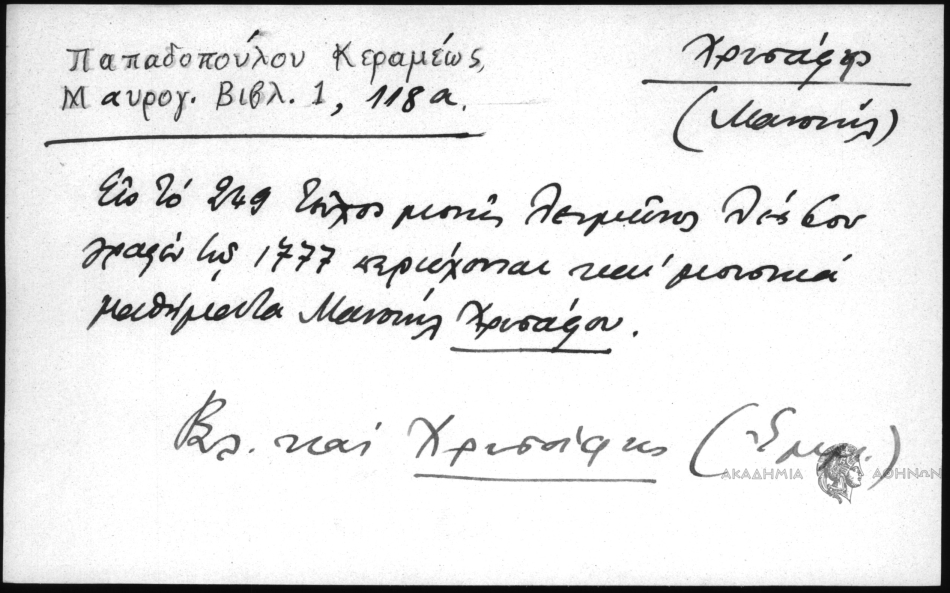 Παπαδοπούλου Κεραμέως,
Μαυρογ. Βιβλ. 1, 118α.
Χρυσάφης
(Μανουήλ)
Εἰς τό 249 τεῦχος μονῆς Λειμῶνος Λέσβου
γραφέν τῷ 1777 περιέχονται καί μουσικά
μαθήματα Μανουήλ Χρυσάφου.
Βλ. καί Χρυσάφης
ΑΚΑΔΗΜΙΑ ΑΘΗΝΩΝ